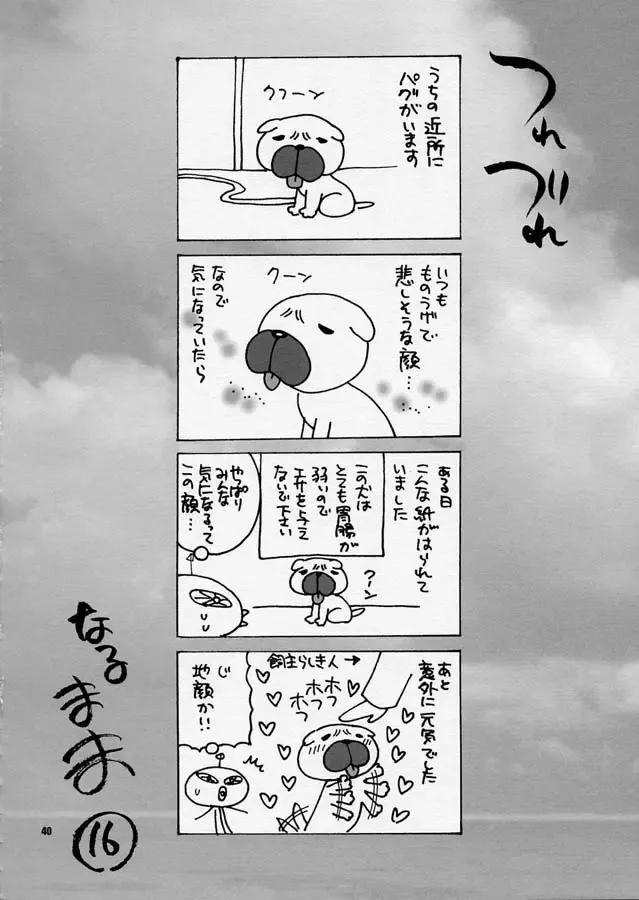 つれ
づれ
なる
まま
⑯
うちの近所に
パグがいます
クフーン
いつも
ものうげで
悲しそうな顔…
なので
気になっていたら
クーン
ある日
こんな紙がはられて
いました
この犬は
とても胃腸が
弱いので
エサを与え
ないで下さい
やっぱり
みんな
気になるって
この顔…
クーン
あと
意外に元気でした
飼主らしき人→
ホフ
ホフ
ホフ
じ
地顔か!!
40